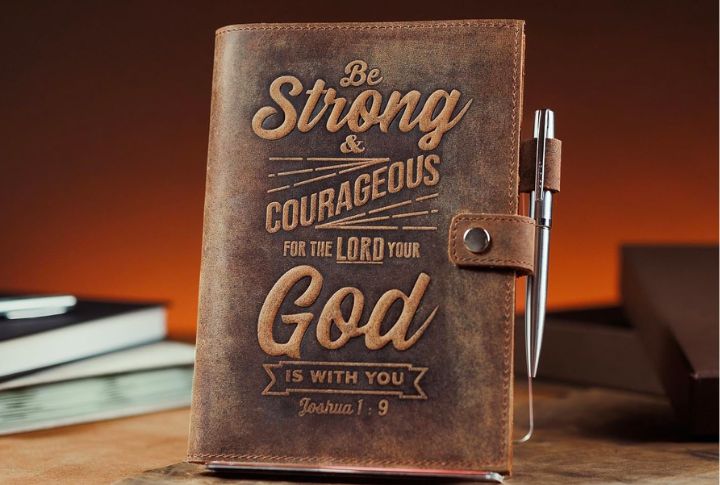 Be
Strong
&
COURAGEOUS
FOR THE LORD YOUR
God
IS WITH YOU
Joshua 1 : 9